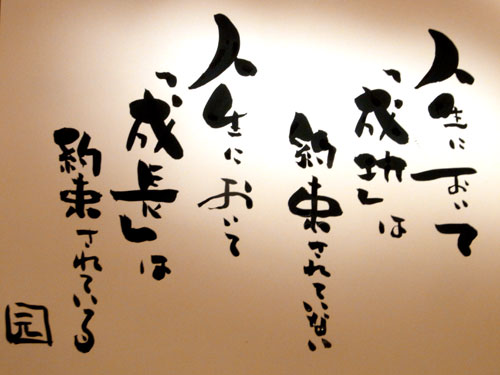 人生において
「成功」は
約束されていない
人生において
「成長」は
約束されている
元